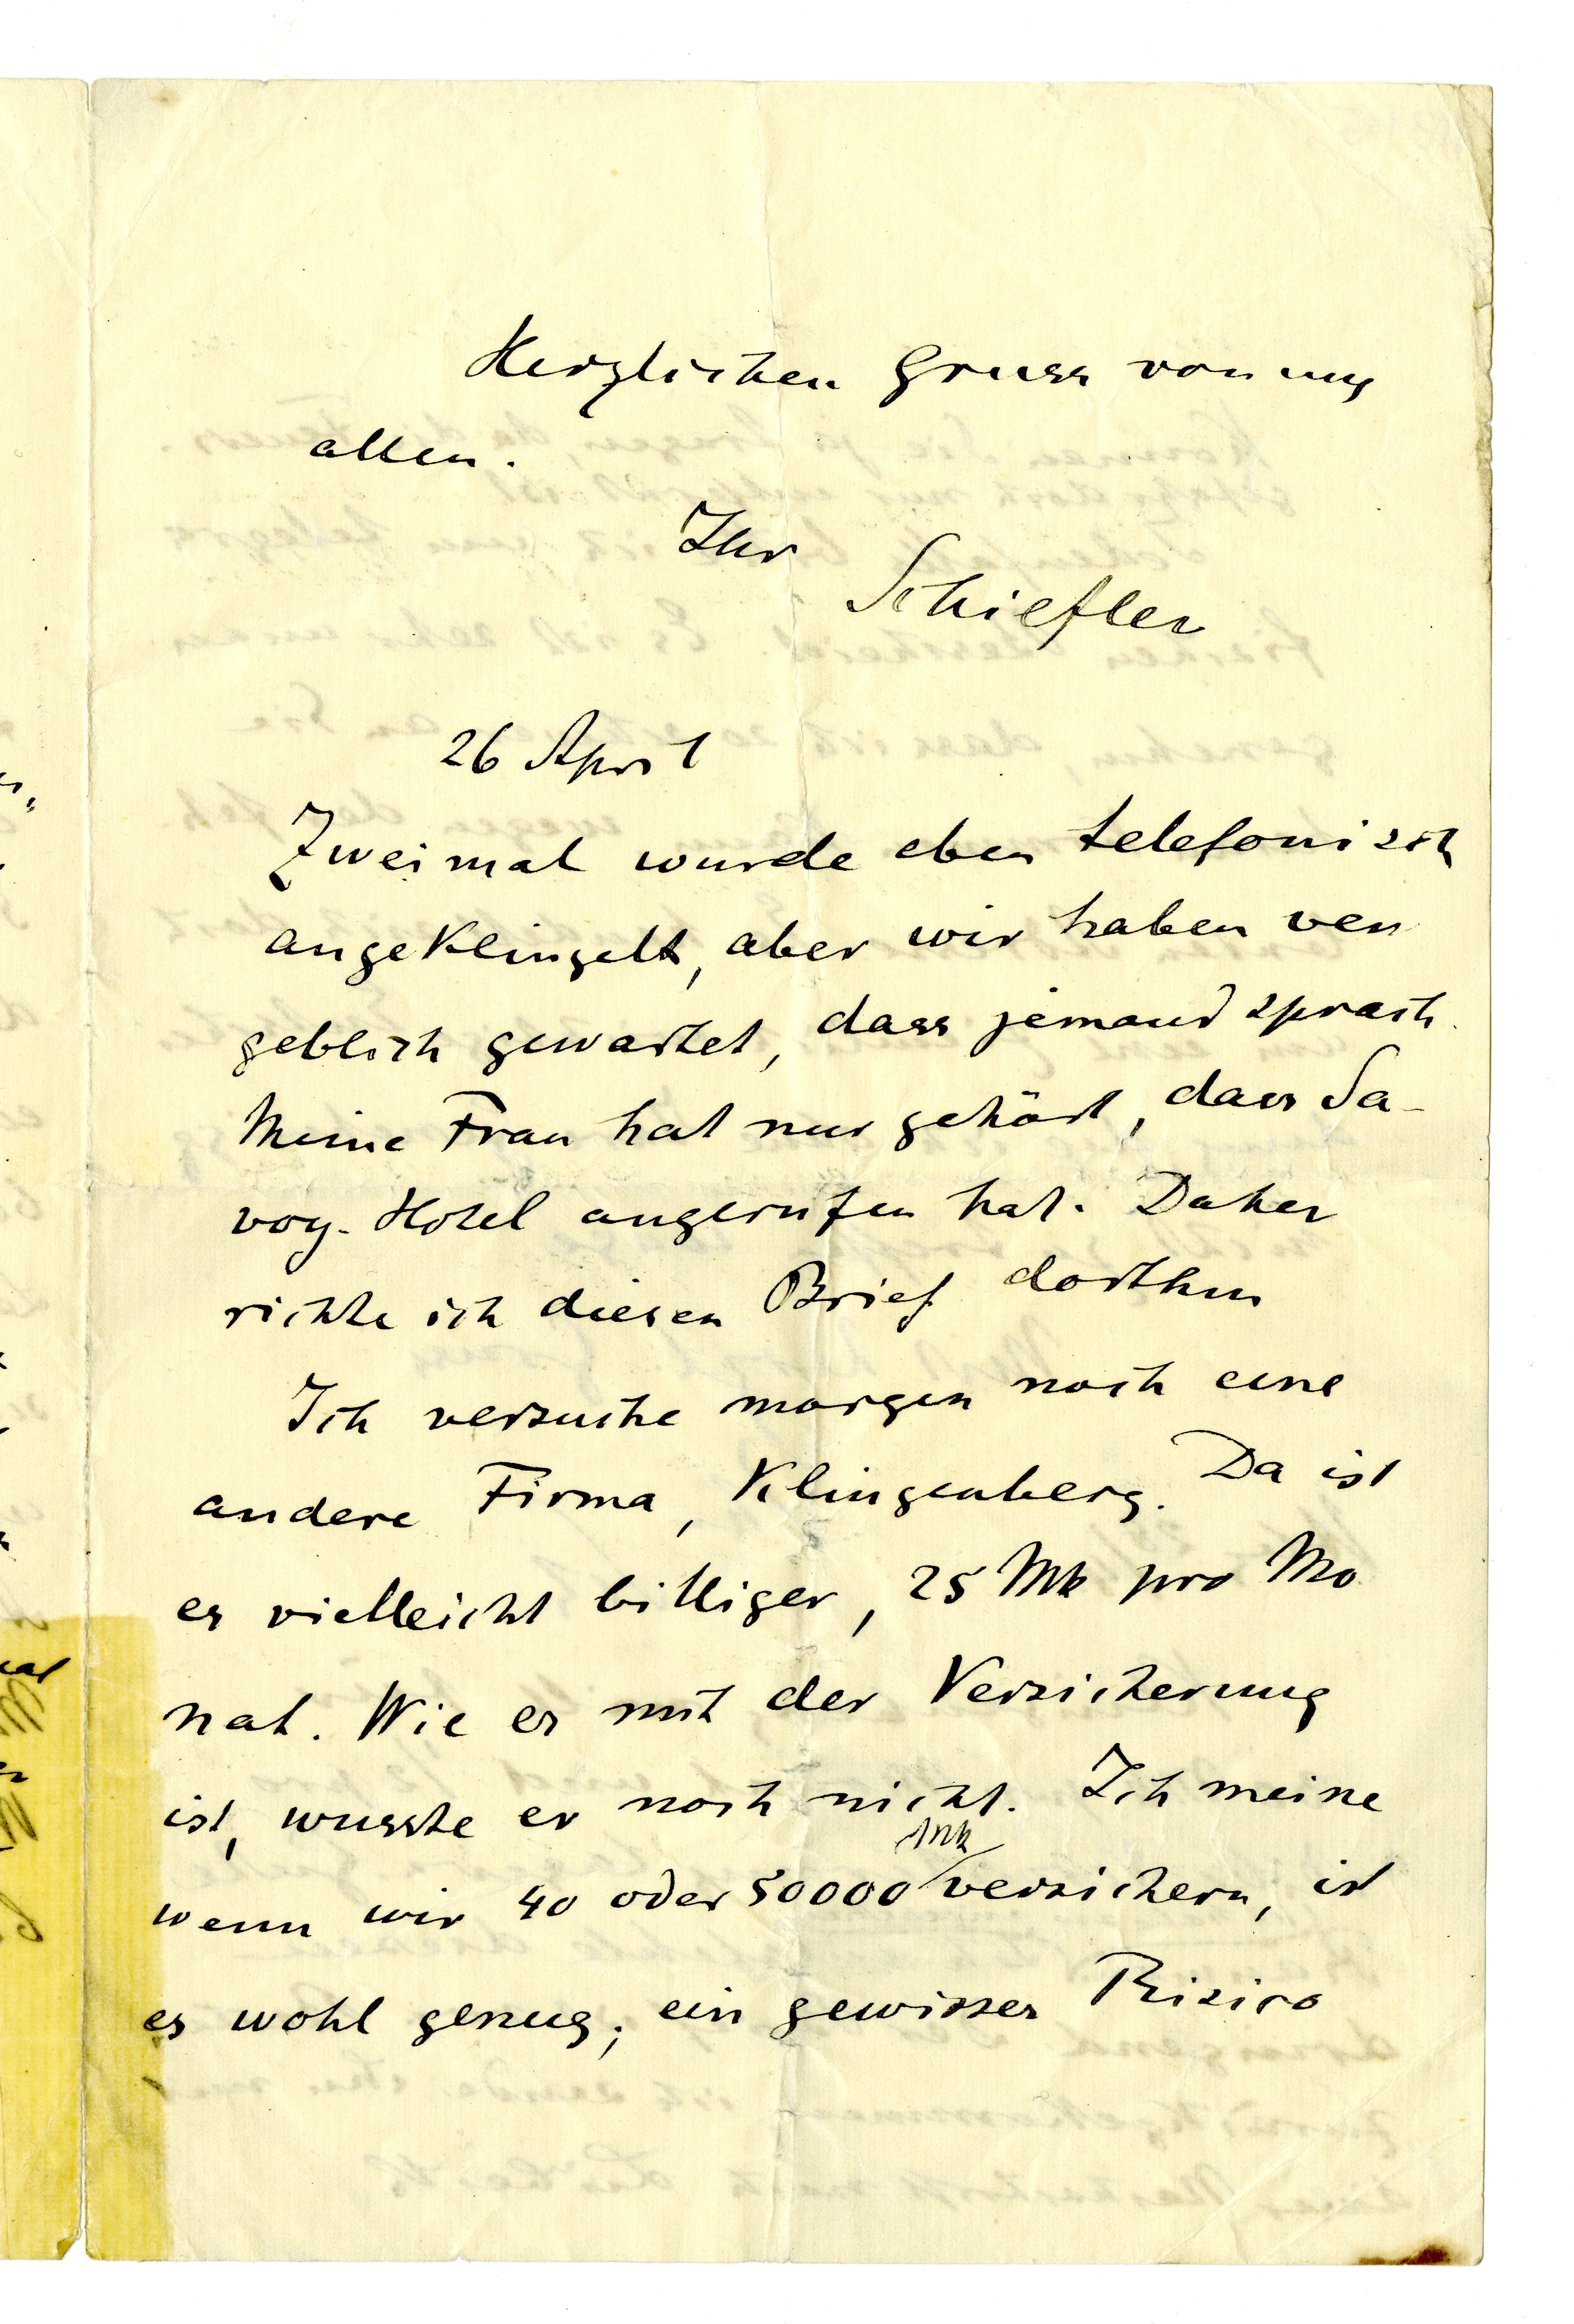 Herzlichen Gruss von uns
allen.
Ihr
Schiefler
26 April
Zweimal wurde eben telefonisch
angeklingelt, aber wir haben ver
geblich gewartet, dass jemand sprach.
Meine Frau hat nur gehört, dass Sa-
voy-Hotel angerufen hat. Daher
richte ich diesen Brief dorthin
Ich versuche morgen noch eine
andere Firma, Klingenberg. Da ist
es vielleicht billiger, 25 Mk pro Mo
nat. Wie es mit der Versicherung
ist, wusste er noch nicht. Ich meine
Mk
wenn wir 40 oder 50000 versichern, ist
es wohl genug; ein gewisses Risico